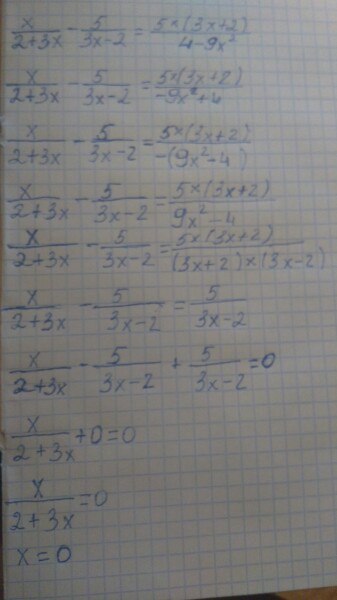 x/(2+3x) - 5/(3x-2) = 5×(3x+2)/(4-9x²)
x/(2+3x) - 5/(3x-2) = 5×(3x+2)/(-9x²+4)
x/(2+3x) - 5/(3x-2) = 5×(3x+2)/(-(9x²-4))
x/(2+3x) - 5/(3x-2) = 5×(3x+2)/(9x²-4)
x/(2+3x) - 5/(3x-2) = 5×(3x+2)/((3x+2)×(3x-2))
x/(2+3x) - 5/(3x-2) = 5/(3x-2)
x/(2+3x) - 5/(3x-2) + 5/(3x-2) = 0
x/(2+3x) + 0 = 0
x/(2+3x) = 0
x = 0